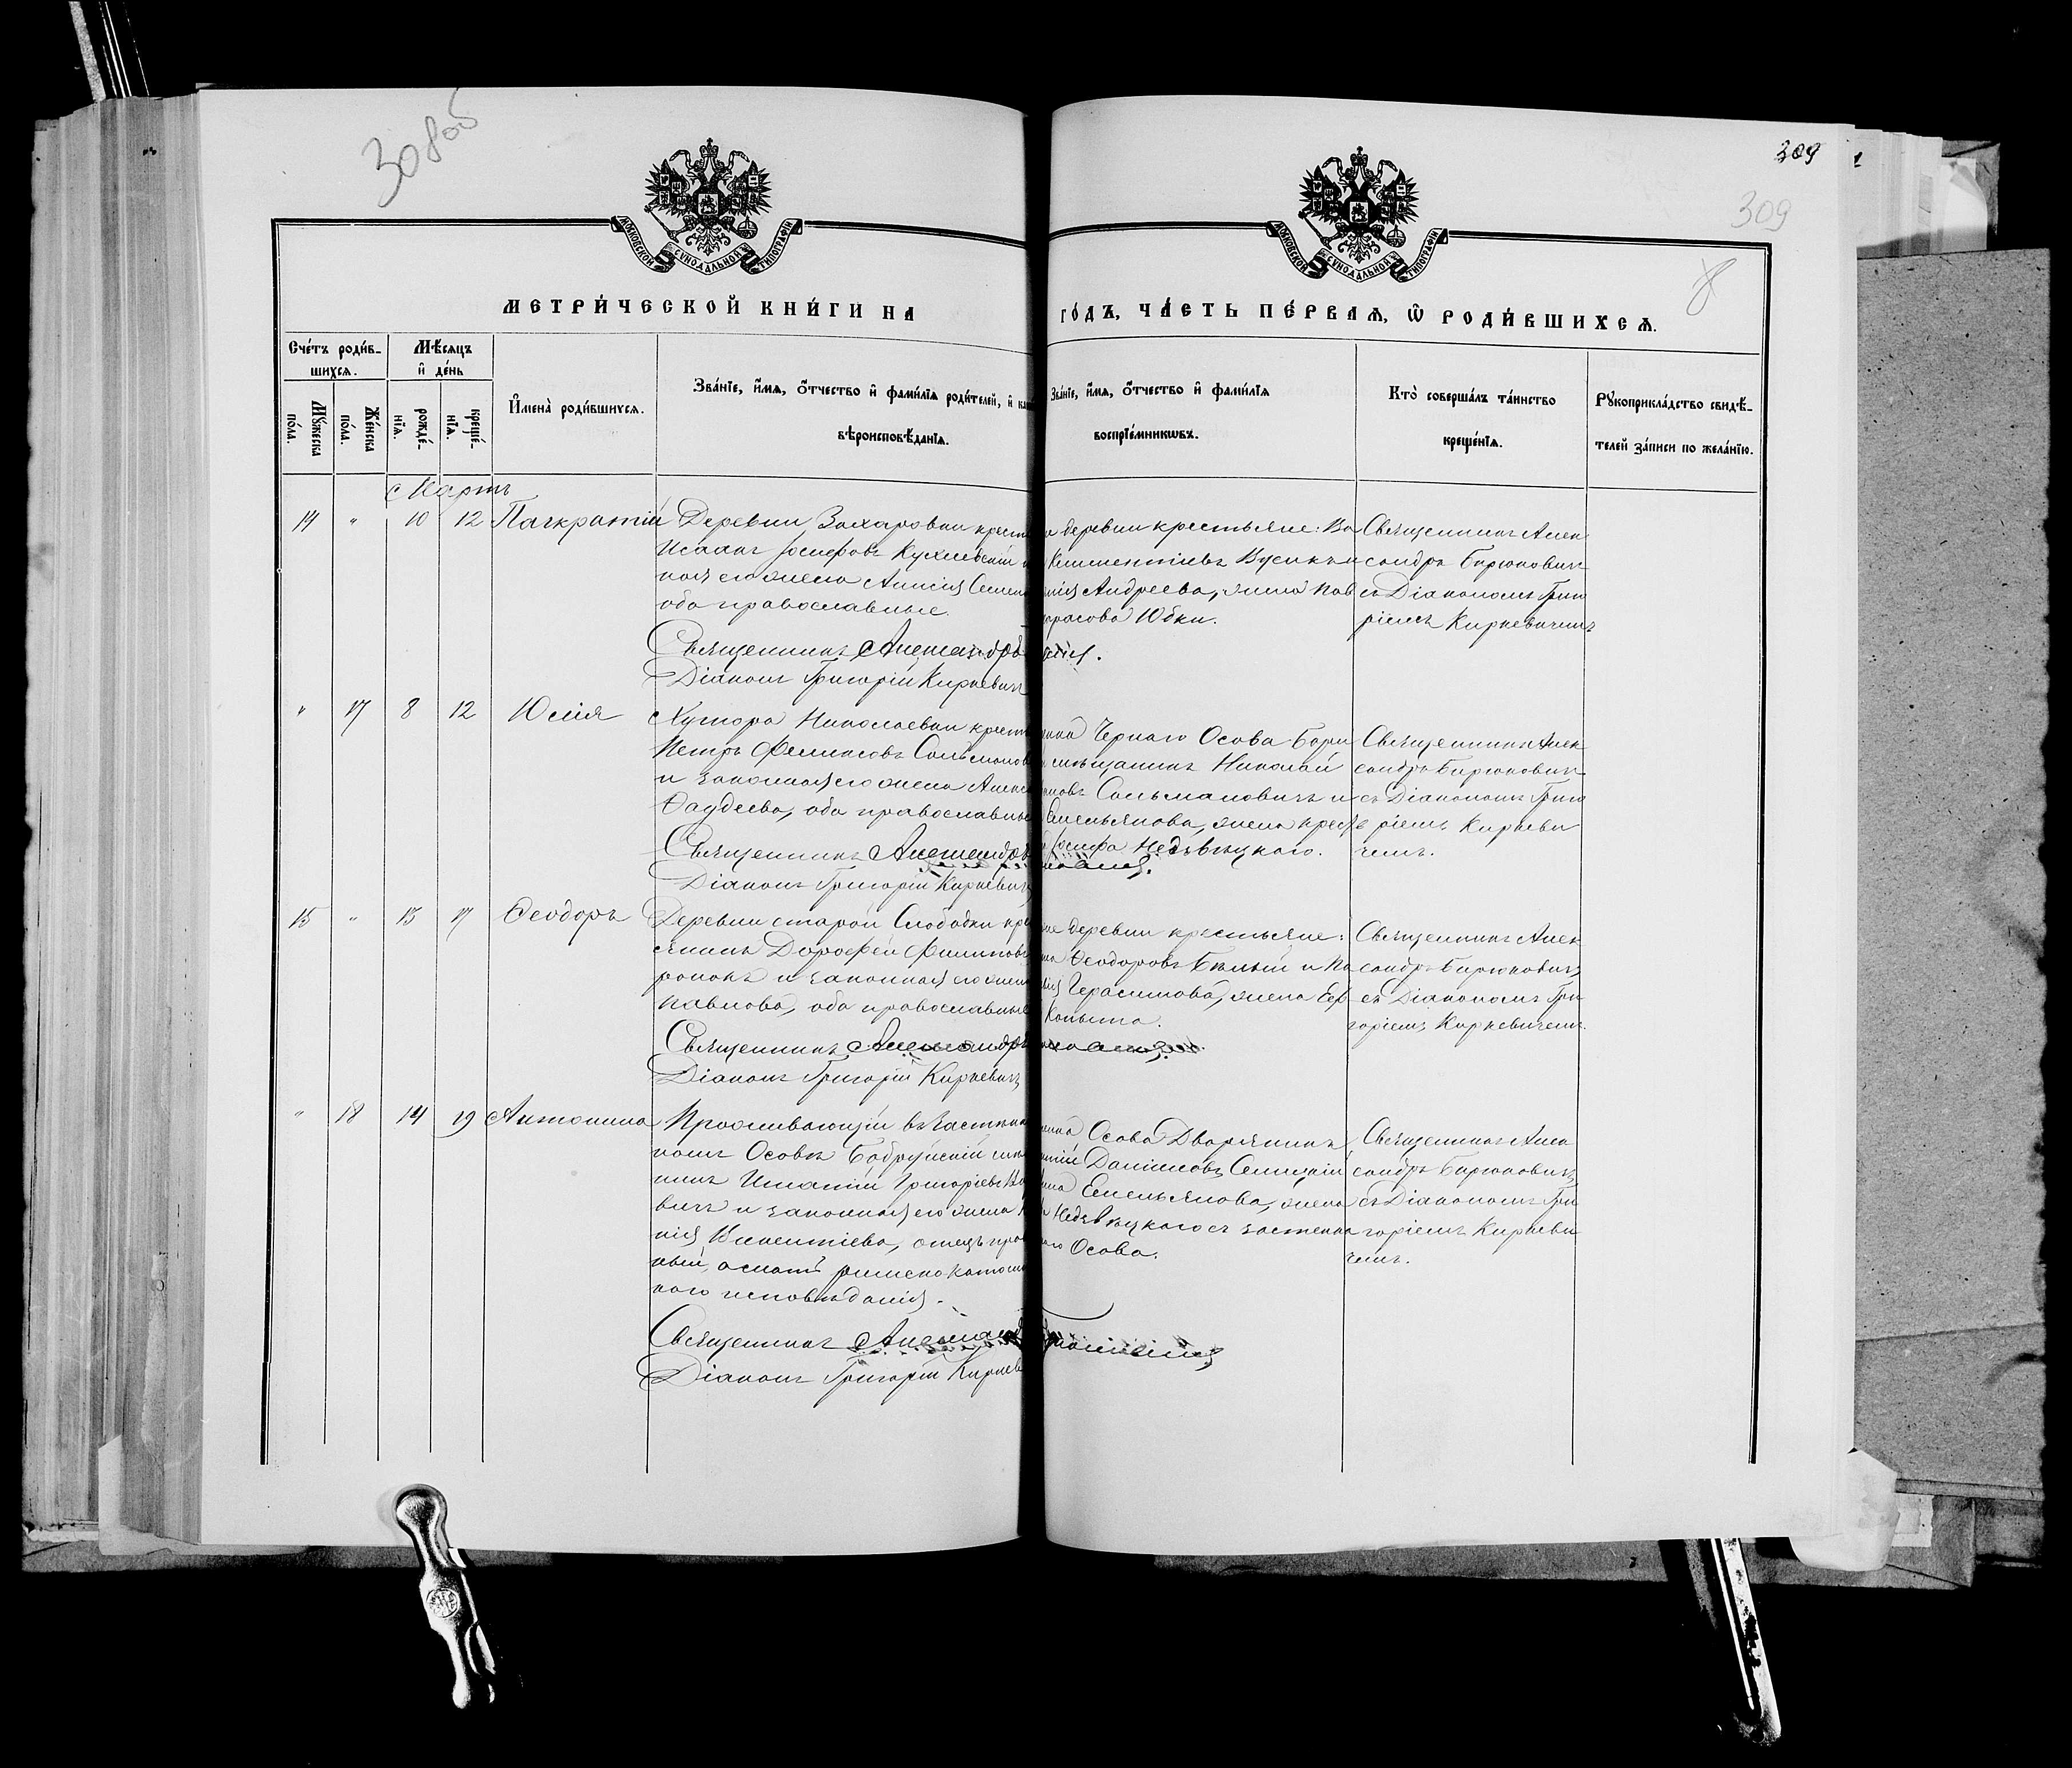 308 об
309
309
8
МОСКОВСКОЙ СѴНОДАЛЬНОЙ ТИПОГРАФІИ
МОСКОВСКОЙ СѴНОДАЛЬНОЙ ТИПОГРАФІИ
МЕТРИ́ЧЕСКОЙ КНИ́ГИ НА
ГО́ДЪ, ЧА́СТЬ ПЕ́РВАѦ, Ѿ РОДИ́ВШИХСѦ.
Сче́тъ роди́в-
шихсѧ.
Мѣ́сѧцъ
и҆ де́нь
Мꙋ́жеска
по́ла.
Же́нска
по́ла.
рожде́-
нїѧ.
креще́-
нїѧ.
И҆мена̀ роди́вшихсѧ.
Зва́нїе, и҆́мѧ, ѻ҆́тчество и҆ фами́лїѧ роди́телей, и҆
вѣроисповѣ́данїѧ.
Зва́нїе, и҆́мѧ, ѻ҆́тчество и҆ фами́лїѧ
воспрїе́мникѡвъ.
Кто̀ соверша́лъ та́инство
креще́нїѧ.
Рꙋкоприкла́дство свидѣ́-
телей за́писи по жела́нїю.
Мартъ
14 " 10 12 Панкратій
Деревни Захаровки крест
Исаакъ Іосифовъ
ная его жена Анисія Семен
оба православные.
Священникъ Александръ
Діаконъ Григорій Киркевичъ
деревни крестьяне: Ва
Климентіевъ Бусикъ и
Андреева, жена Пав
Тарасова Юбки.
Священникъ Алек
сандръ Бирюковичъ
съ Діакономъ Григо
ріемъ Киркевичемъ
" 17 8 12 Юлія
Хутора Николаевки крест
Петръ Феликсовъ Сальманов
и законная его жена Алекс
Фаддеева, оба православные
Священникъ Александръ
Діаконъ Григорій Киркевичъ
Чернаго Осова Бори
мѣщанинъ Николай
Сальмановичъ и
Емельянова, жена крест
Іосифа Недзвѣцкаго.
Священникъ Алек
сандръ Бирюковичъ
съ Діакономъ Григо
ріемъ Киркеви
чемъ.
15 " 15 17 Ѳеодоръ
Деревни старой Слободки кре
янинъ Дорофей Филиповъ
и законная его жена
Павлова, оба православные
Священникъ Александръ
Діаконъ Григорій Киркевичъ
деревни крестьяне:
Ѳеодоровъ Бѣлый и
Герасимова, жена
Копыта.
Священникъ Алек
сандръ Бирюковичъ
съ Діакономъ Гри
горіемъ Киркевичемъ.
" 18 14 19 Антонина
Проживающій въ Застѣнкѣ
номъ Осовѣ Бобруйскій мѣщ
нинъ Игнатій Григорьевъ
вичъ и законная его жена
нія Викентіева, отецъ прав
ный, а мать римско католи
каго исповѣданія.
Священникъ Александръ
Діаконъ Григорій Киркев
Осова Дворянинъ
Даніиловъ Сеницкій
Емельянова, жена
Недзвѣцкаго съ застѣнка
Осова.
Священникъ Алек
сандръ Бирюковичъ
съ Діакономъ Гри
горіемъ Киркеви
чемъ.